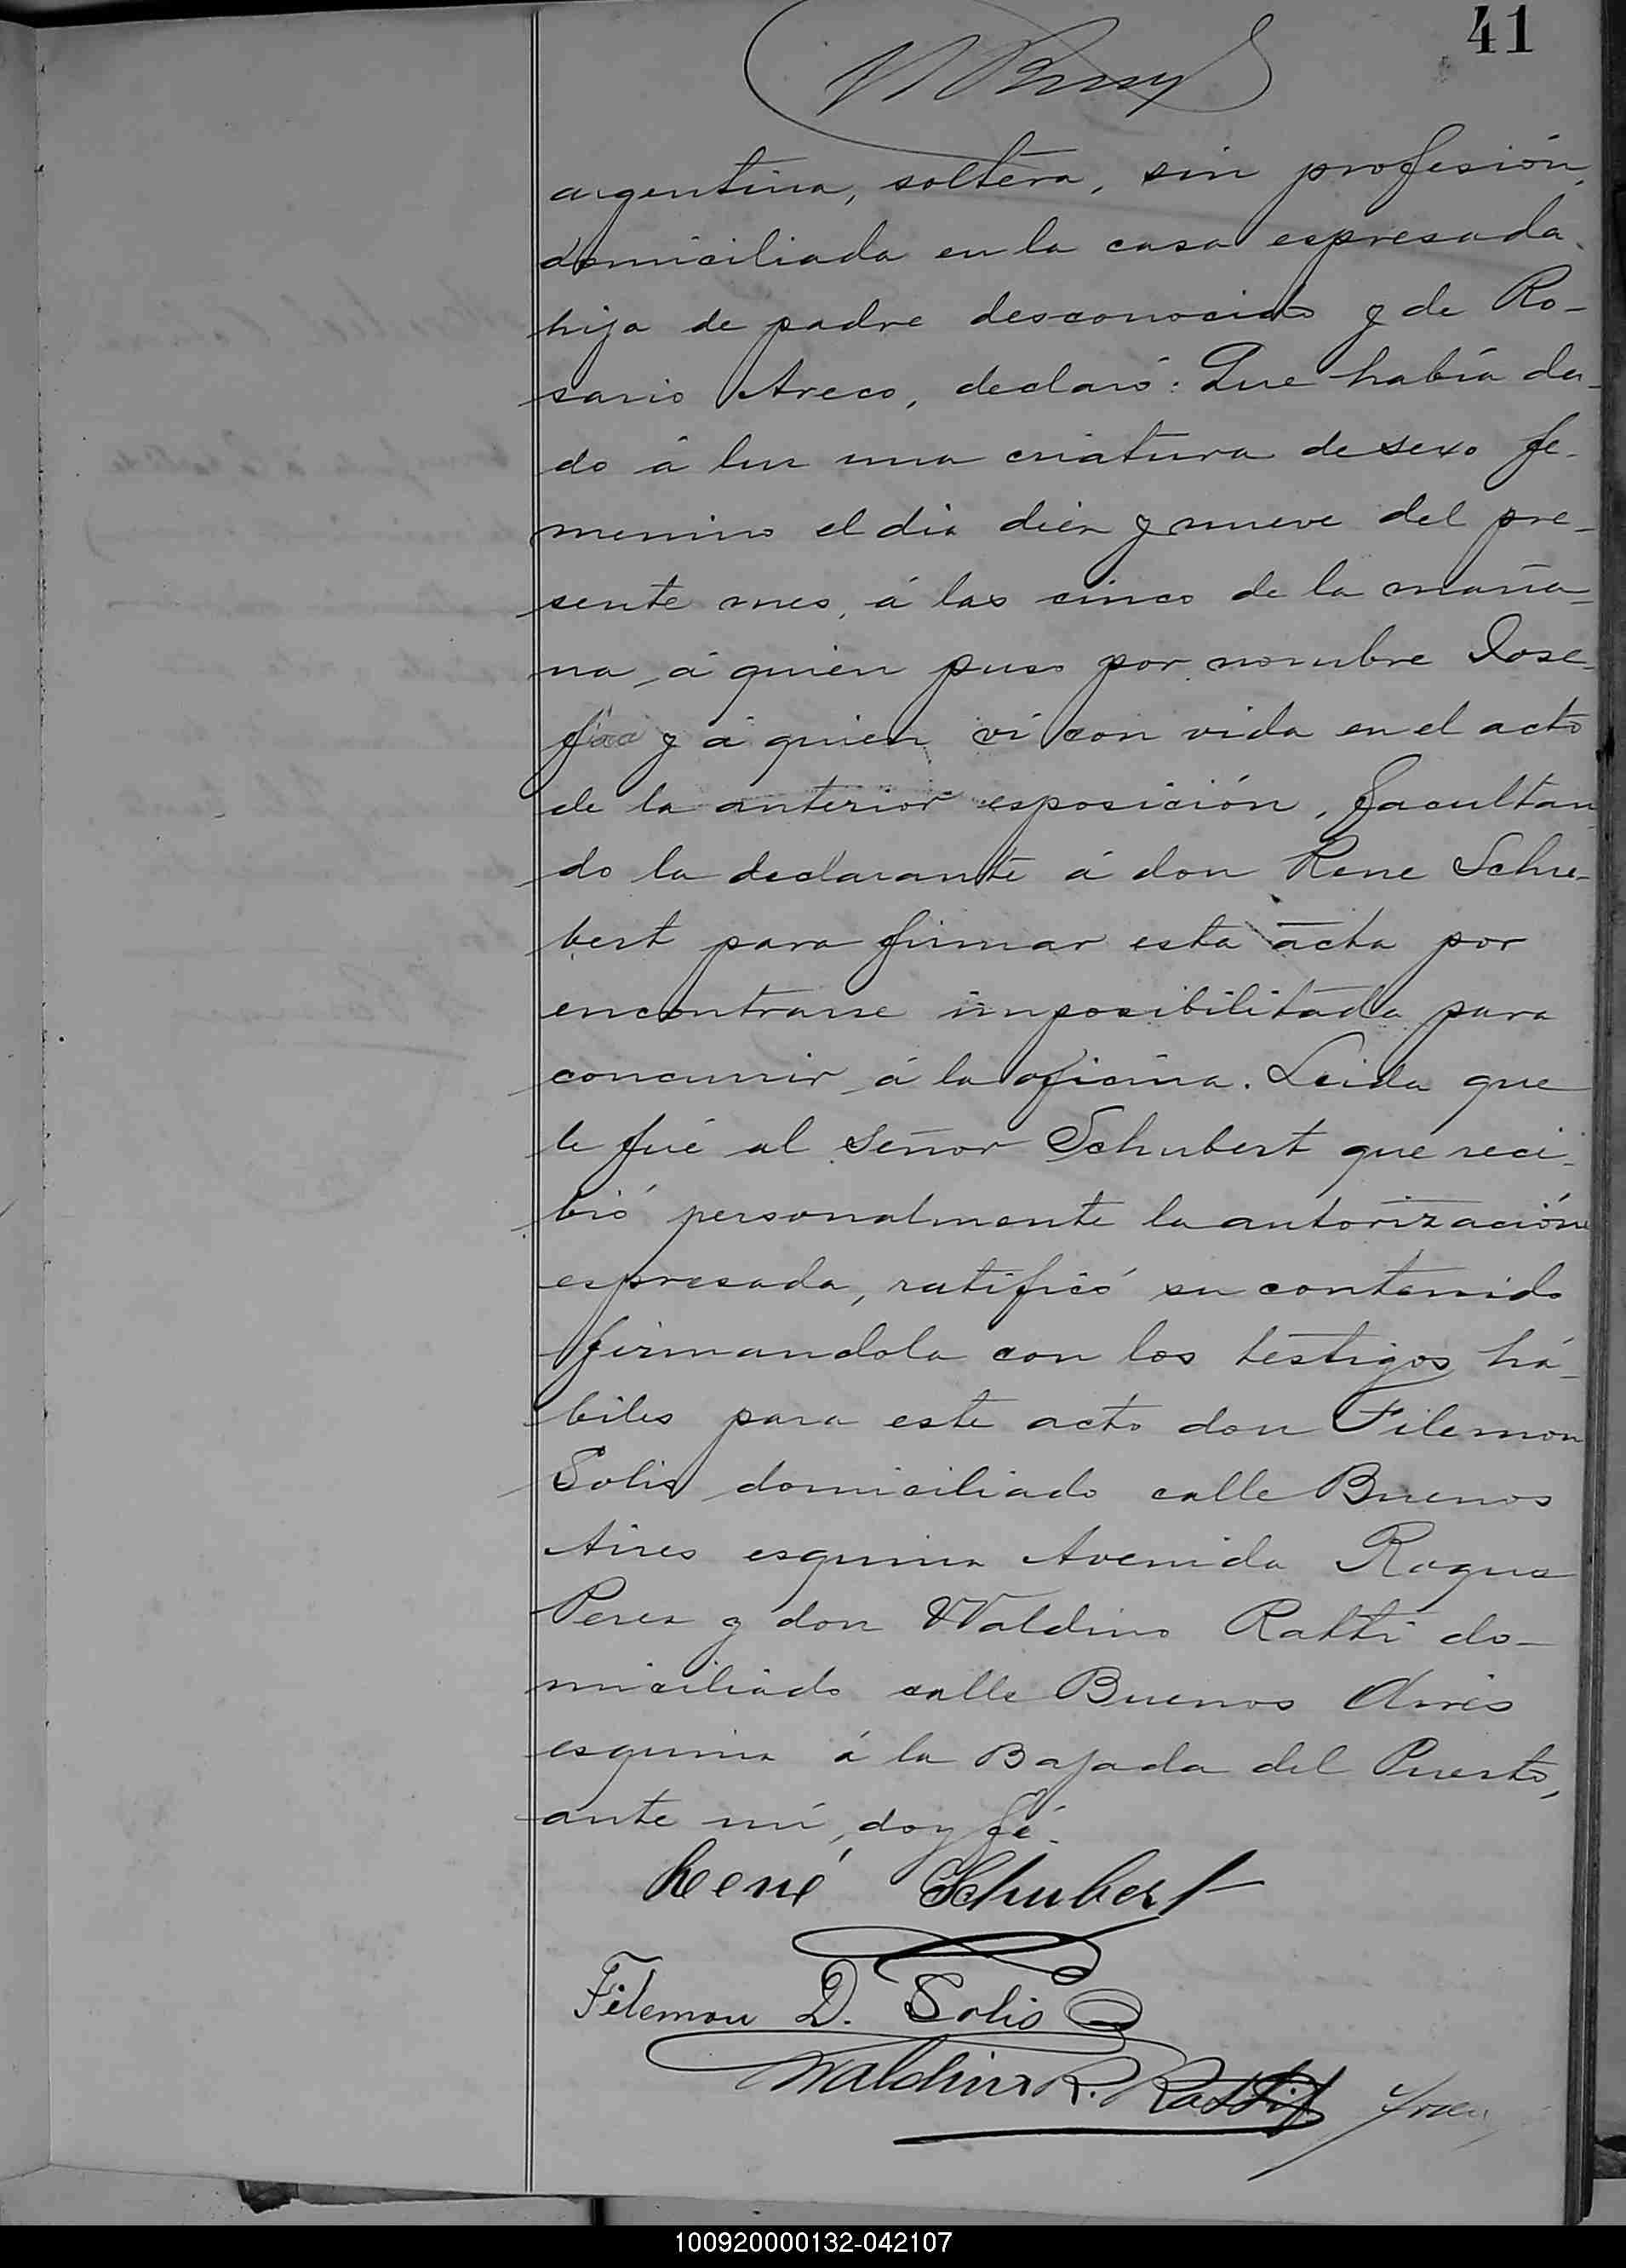 41
argentina, soltera, sin profesión,
domiciliada en la casa espresada.
hija de padre desconocido y de Ro-
sario Areco, declaró: Que había da-
do á luz una criatura de sexo fe-
menino el dia diez y nueve del pre-
sente mes, á las cinco de la maña-
na, á quien puso por nombre Jose-
fina y á quien ví con vida en el acto
de la anterior esposición, facultan
do la declarante á don Rene Schu-
bert para firmar esta acta por
encontrarse imposibilitada para
concurrir á la oficina. Leida que
le fué al Señor Schubert que reci-
bió personalmente la autorización
espresada, ratificó su contenido
firmandola con los testigos há-
biles para este acto don Filemon
Solis domiciliado calle Buenos
Aires esquina Avenida Roque
Perez y don Waldino Ratti do-
miciliado calle Buenos Aires
esquina á la Bajada del Puerto,
ante mí, doy fé.
René Schubert
Filemon D. Solis
Waldino R. Ratti
100920000132-042107